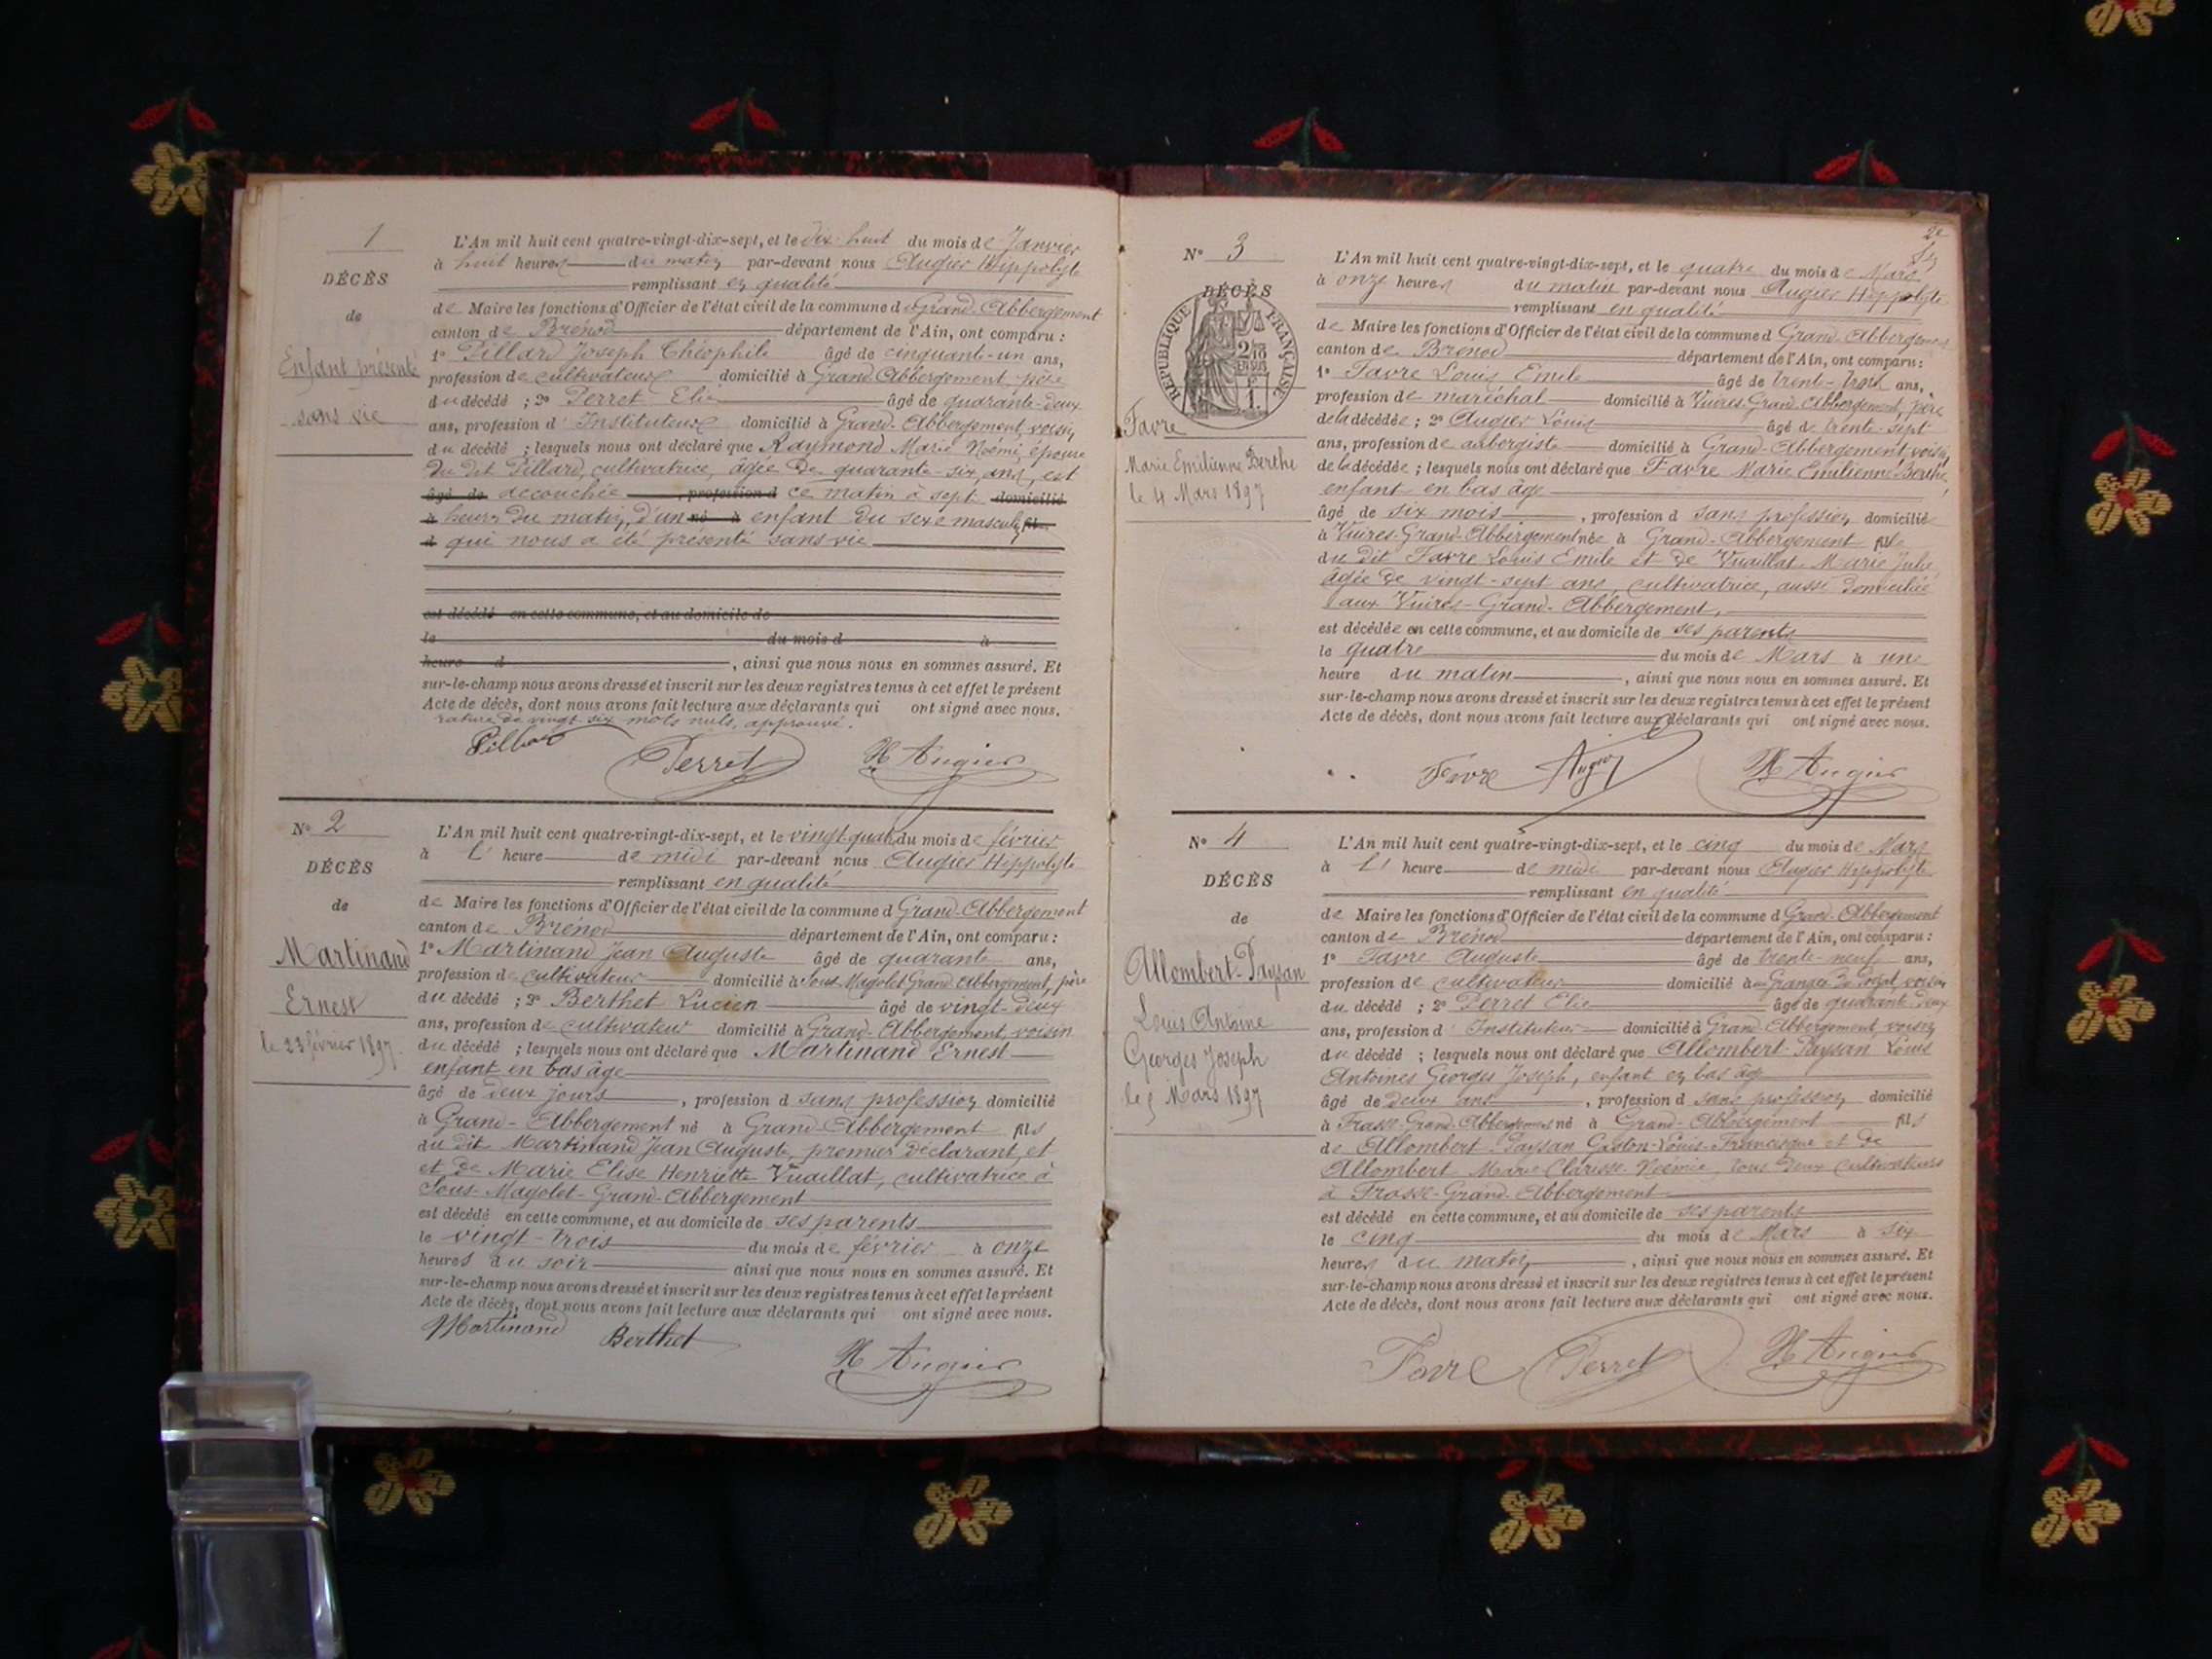 1
DÉCÈS
de
Enfant présenté
sans vie
L'An mil huit cent quatre-vingt-dix-sept, et le dix-huit du mois de Janvier
à huit heures du matin par-devant nous Augier Hippolyte
remplissant en qualité
de Maire les fonctions d'Officier de l'état civil de la commune d Grand-Abbergement
canton de Brénod département de l'Ain, ont comparu :
1° Pillard Joseph Théophile âgé de cinquante-un ans,
profession de cultivateur domicilié à Grand-Abbergement, père
du décédé ; 2° Perret Elie âgé de quarante-deux
ans, profession d'Instituteur domicilié à Grand-Abbergement, voisin
du décédé ; lesquels nous ont déclaré que Raymond Marie Noémie, épouse
du dit Pillard, cultivatrice, âgée de quarante-six ans, est
âgé de accouchée , profession d ce matin à sept domicilié
à heures du matin, d'un né à enfant du sexe masculin fils
d qui nous a été présenté sans vie
est décédé en cette commune, et au domicile de
le du mois d à
heure d , ainsi que nous nous en sommes assuré. Et
sur-le-champ nous avons dressé et inscrit sur les deux registres tenus à cet effet le présent
Acte de décès, dont nous avons fait lecture aux déclarants qui ont signé avec nous.
rature de vingt six mots nuls, approuvé.
Pillard Perret H Augier
N° 2
DÉCÈS
de
Martinand
Ernest
le 23 février 1897.
L'An mil huit cent quatre-vingt-dix-sept, et le vingt-quatre du mois de février
à l' heure de midi par-devant nous Augier Hippolyte
remplissant en qualité
de Maire les fonctions d'Officier de l'état civil de la commune d Grand-Abbergement
canton de Brénod département de l'Ain, ont comparu :
1° Martinand Jean Auguste âgé de quarante ans,
profession de cultivateur domicilié à Sous-Magolet Grand-Abbergement, père
du décédé ; 2° Berthet Lucien âgé de vingt-deux
ans, profession de cultivateur domicilié à Grand-Abbergement, voisin
du décédé ; lesquels nous ont déclaré que Martinand Ernest
enfant en bas âge
âgé de deux jours , profession d sans profession domicilié
à Grand-Abbergement né à Grand-Abbergement fils
du dit Martinand Jean Auguste, premier déclarant, et
et de Marie Elise Henriette Vuaillat, cultivatrice à
Sous-Magolet-Grand-Abbergement
est décédé en cette commune, et au domicile de ses parents
le vingt-trois du mois de février à onze
heures du soir ainsi que nous nous en sommes assuré. Et
sur-le-champ nous avons dressé et inscrit sur les deux registres tenus à cet effet le présent
Acte de décès, dont nous avons fait lecture aux déclarants qui ont signé avec nous.
Martinand Berthet H Augier
2e
N° 3
DÉCÈS
RÉPUBLIQUE FRANÇAISE
Favre
Marie Emilienne Berthe
le 4 Mars 1897
L'An mil huit cent quatre-vingt-dix-sept, et le quatre du mois de Mars
à onze heures du matin par-devant nous Augier Hippolyte
remplissant en qualité
de Maire les fonctions d'Officier de l'état civil de la commune d Grand-Abbergement
canton de Brénod département de l'Ain, ont comparu :
1° Favre Louis Emile âgé de trente-trois ans,
profession de maréchal domicilié à Vuires-Grand-Abbergement, père
de la décédée ; 2° Augier Louis âgé de trente-sept
ans, profession de aubergiste domicilié à Grand-Abbergement, voisin
de la décédée ; lesquels nous ont déclaré que Favre Marie Emilienne Berthe,
enfant en bas âge
âgé de six mois , profession d sans profession domicilié
à Vuires-Grand-Abbergement née à Grand-Abbergement fille
du dit Favre Louis Emile et de Vuaillat Marie Julie,
âgée de vingt-sept ans, cultivatrice, aussi domiciliée
aux Vuires-Grand-Abbergement,
est décédée en cette commune, et au domicile de ses parents
le quatre du mois de Mars à une
heure du matin , ainsi que nous nous en sommes assuré. Et
sur-le-champ nous avons dressé et inscrit sur les deux registres tenus à cet effet le présent
Acte de décès, dont nous avons fait lecture aux déclarants qui ont signé avec nous.
Favre Augier H Augier
N° 4
DÉCÈS
de
Allombert-Paysan
Louis Antoine
Georges Joseph
le 5 Mars 1897
L'An mil huit cent quatre-vingt-dix-sept, et le cinq du mois de Mars
à l' heure de midi par-devant nous Augier Hippolyte
remplissant en qualité
de Maire les fonctions d'Officier de l'état civil de la commune d Grand-Abbergement
canton de Brénod département de l'Ain, ont comparu :
1° Favre Auguste âgé de trente-neuf ans,
profession de cultivateur domicilié à Granges voisin
du décédé ; 2° Perret Elie âgé de quarante-deux
ans, profession d'Instituteur domicilié à Grand-Abbergement, voisin
du décédé ; lesquels nous ont déclaré que Allombert-Paysan Louis
Antoines Georges Joseph, enfant en bas âge
âgé de deux ans , profession d sans profession domicilié
à Frasse-Grand-Abbergement né à Grand-Abbergement fils
de Allombert-Paysan Gaston-Louis-Francisque et de
Allombert Marie Clarisse-Noémie, tous deux cultivateurs
à Frasse-Grand-Abbergement
est décédé en cette commune, et au domicile de ses parents
le cinq du mois de Mars à six
heures du matin , ainsi que nous nous en sommes assuré. Et
sur-le-champ nous avons dressé et inscrit sur les deux registres tenus à cet effet le présent
Acte de décès, dont nous avons fait lecture aux déclarants qui ont signé avec nous.
Favre Perret H Augier